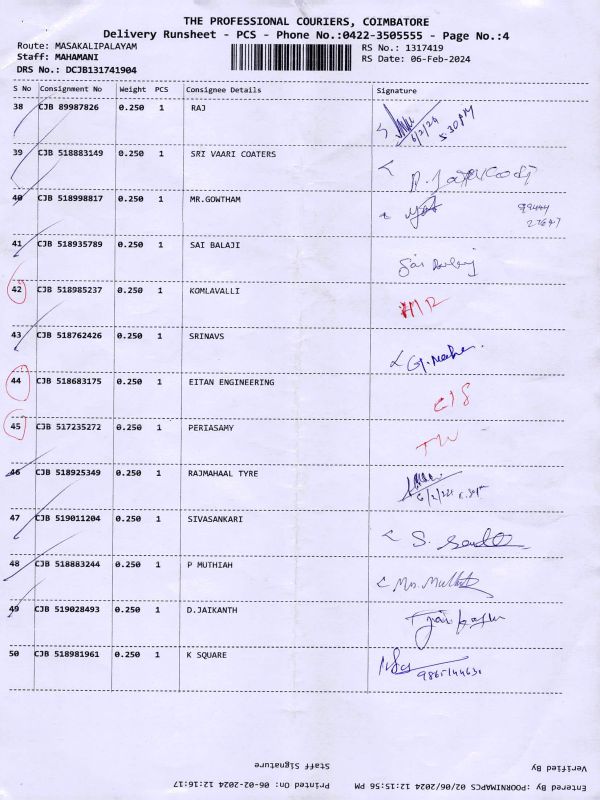 THE PROFESSIONAL COURIERS, COIMBATORE
Delivery Runsheet - PCS - Phone No.:0422-3505555 - Page No.:4
Route: MASAKALIPALAYAM
RS No.: 1317419
Staff: MAHAMANI
RS Date: 06-Feb-2024
DRS No.: DCJB131741904
S No Consignment No Weight PCS Consignee Details Signature
38 CJB 89987826 0.250 1 RAJ 6/2/24 5:30 PM
39 CJB 518883149 0.250 1 SRI VAARI COATERS
40 CJB 518998817 0.250 1 MR.GOWTHAM 99444
27647
41 CJB 518935789 0.250 1 SAI BALAJI Sai Balaji
42 CJB 518985237 0.250 1 KOMLAVALLI
43 CJB 518762426 0.250 1 SRINAVS
44 CJB 518683175 0.250 1 EITAN ENGINEERING
45 CJB 517235272 0.250 1 PERIASAMY
46 CJB 518925349 0.250 1 RAJMAHAAL TYRE
47 CJB 519011204 0.250 1 SIVASANKARI S.
48 CJB 518883244 0.250 1 P MUTHIAH
49 CJB 519028493 0.250 1 D.JAIKANTH
50 CJB 518981961 0.250 1 K SQUARE
Verified By Staff Signature
Entered By :POORNIMAPCS 02/06/2024 12:15:56 PM Printed On: 06-02-2024 12:16:17